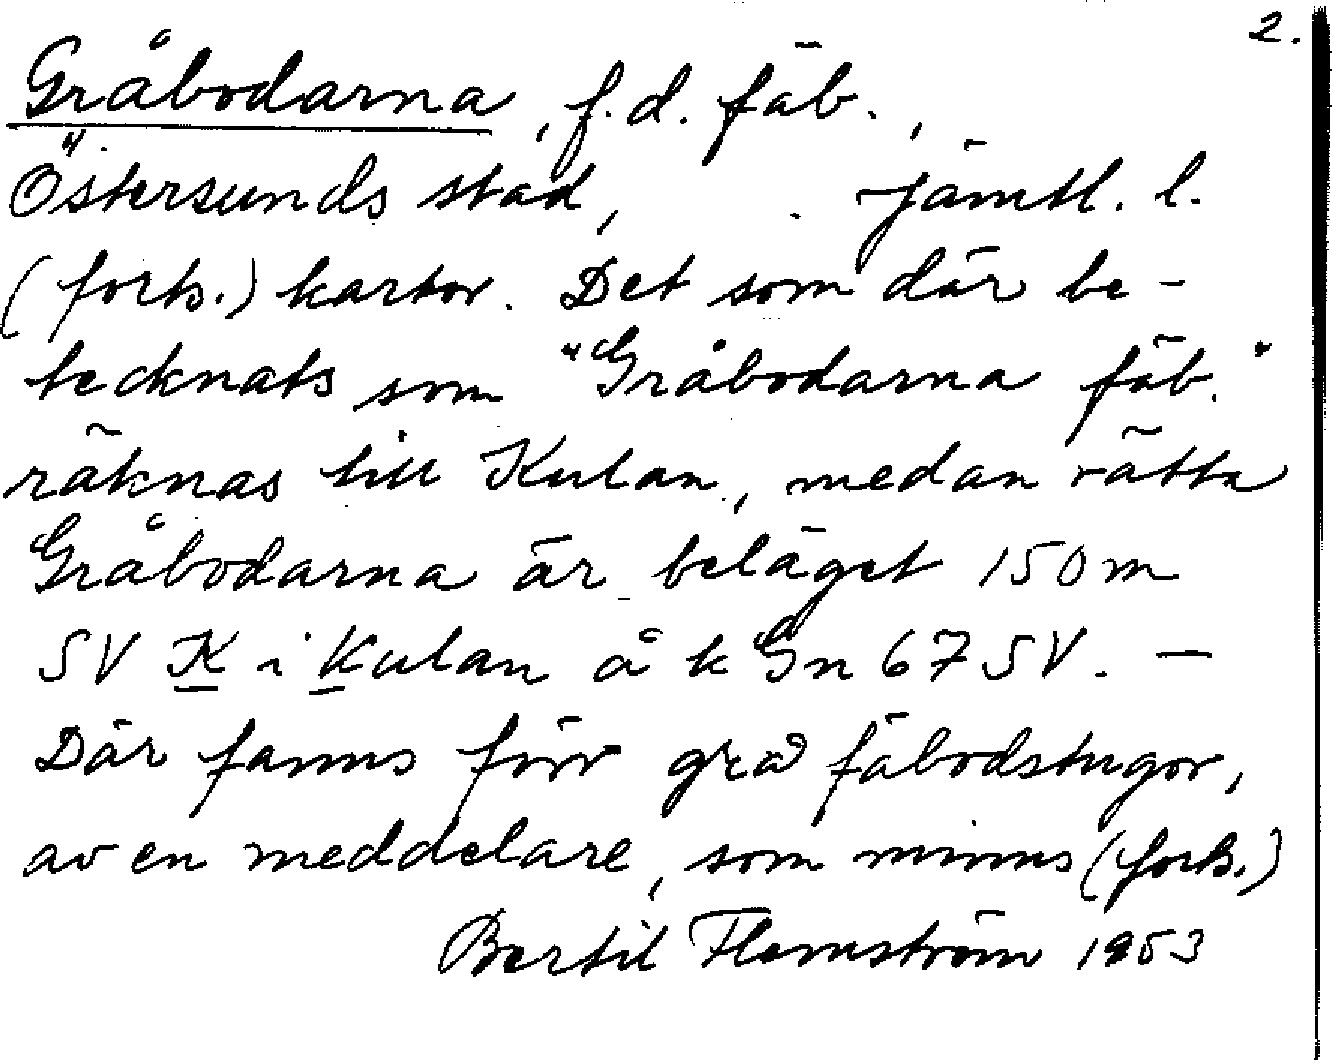 2.
Gråbodarna, f.d. fäb.,
Östersunds stad, Jämtl. l.
(forts.) kartor. Det som där be-
tecknats som "Gråbodarna fäb."
räknas till Kulan, medan rätta
Gråbodarna är beläget 150 m
SV K i Kulan å k Gn 67 SV. —
Där fanns förr grå fäbodstugor,
av en meddelare, som minns (forts.)
Bertil Flemström 1953